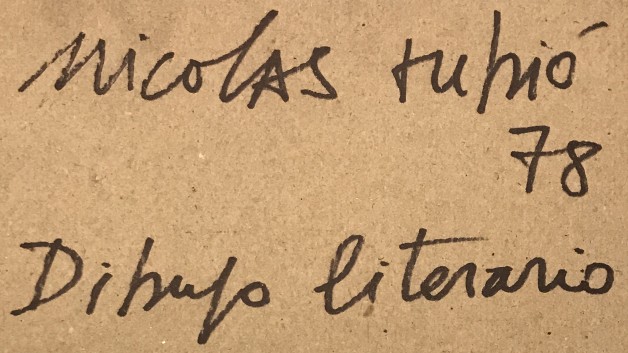 Nicolas Rubió
78
Dibujo literario